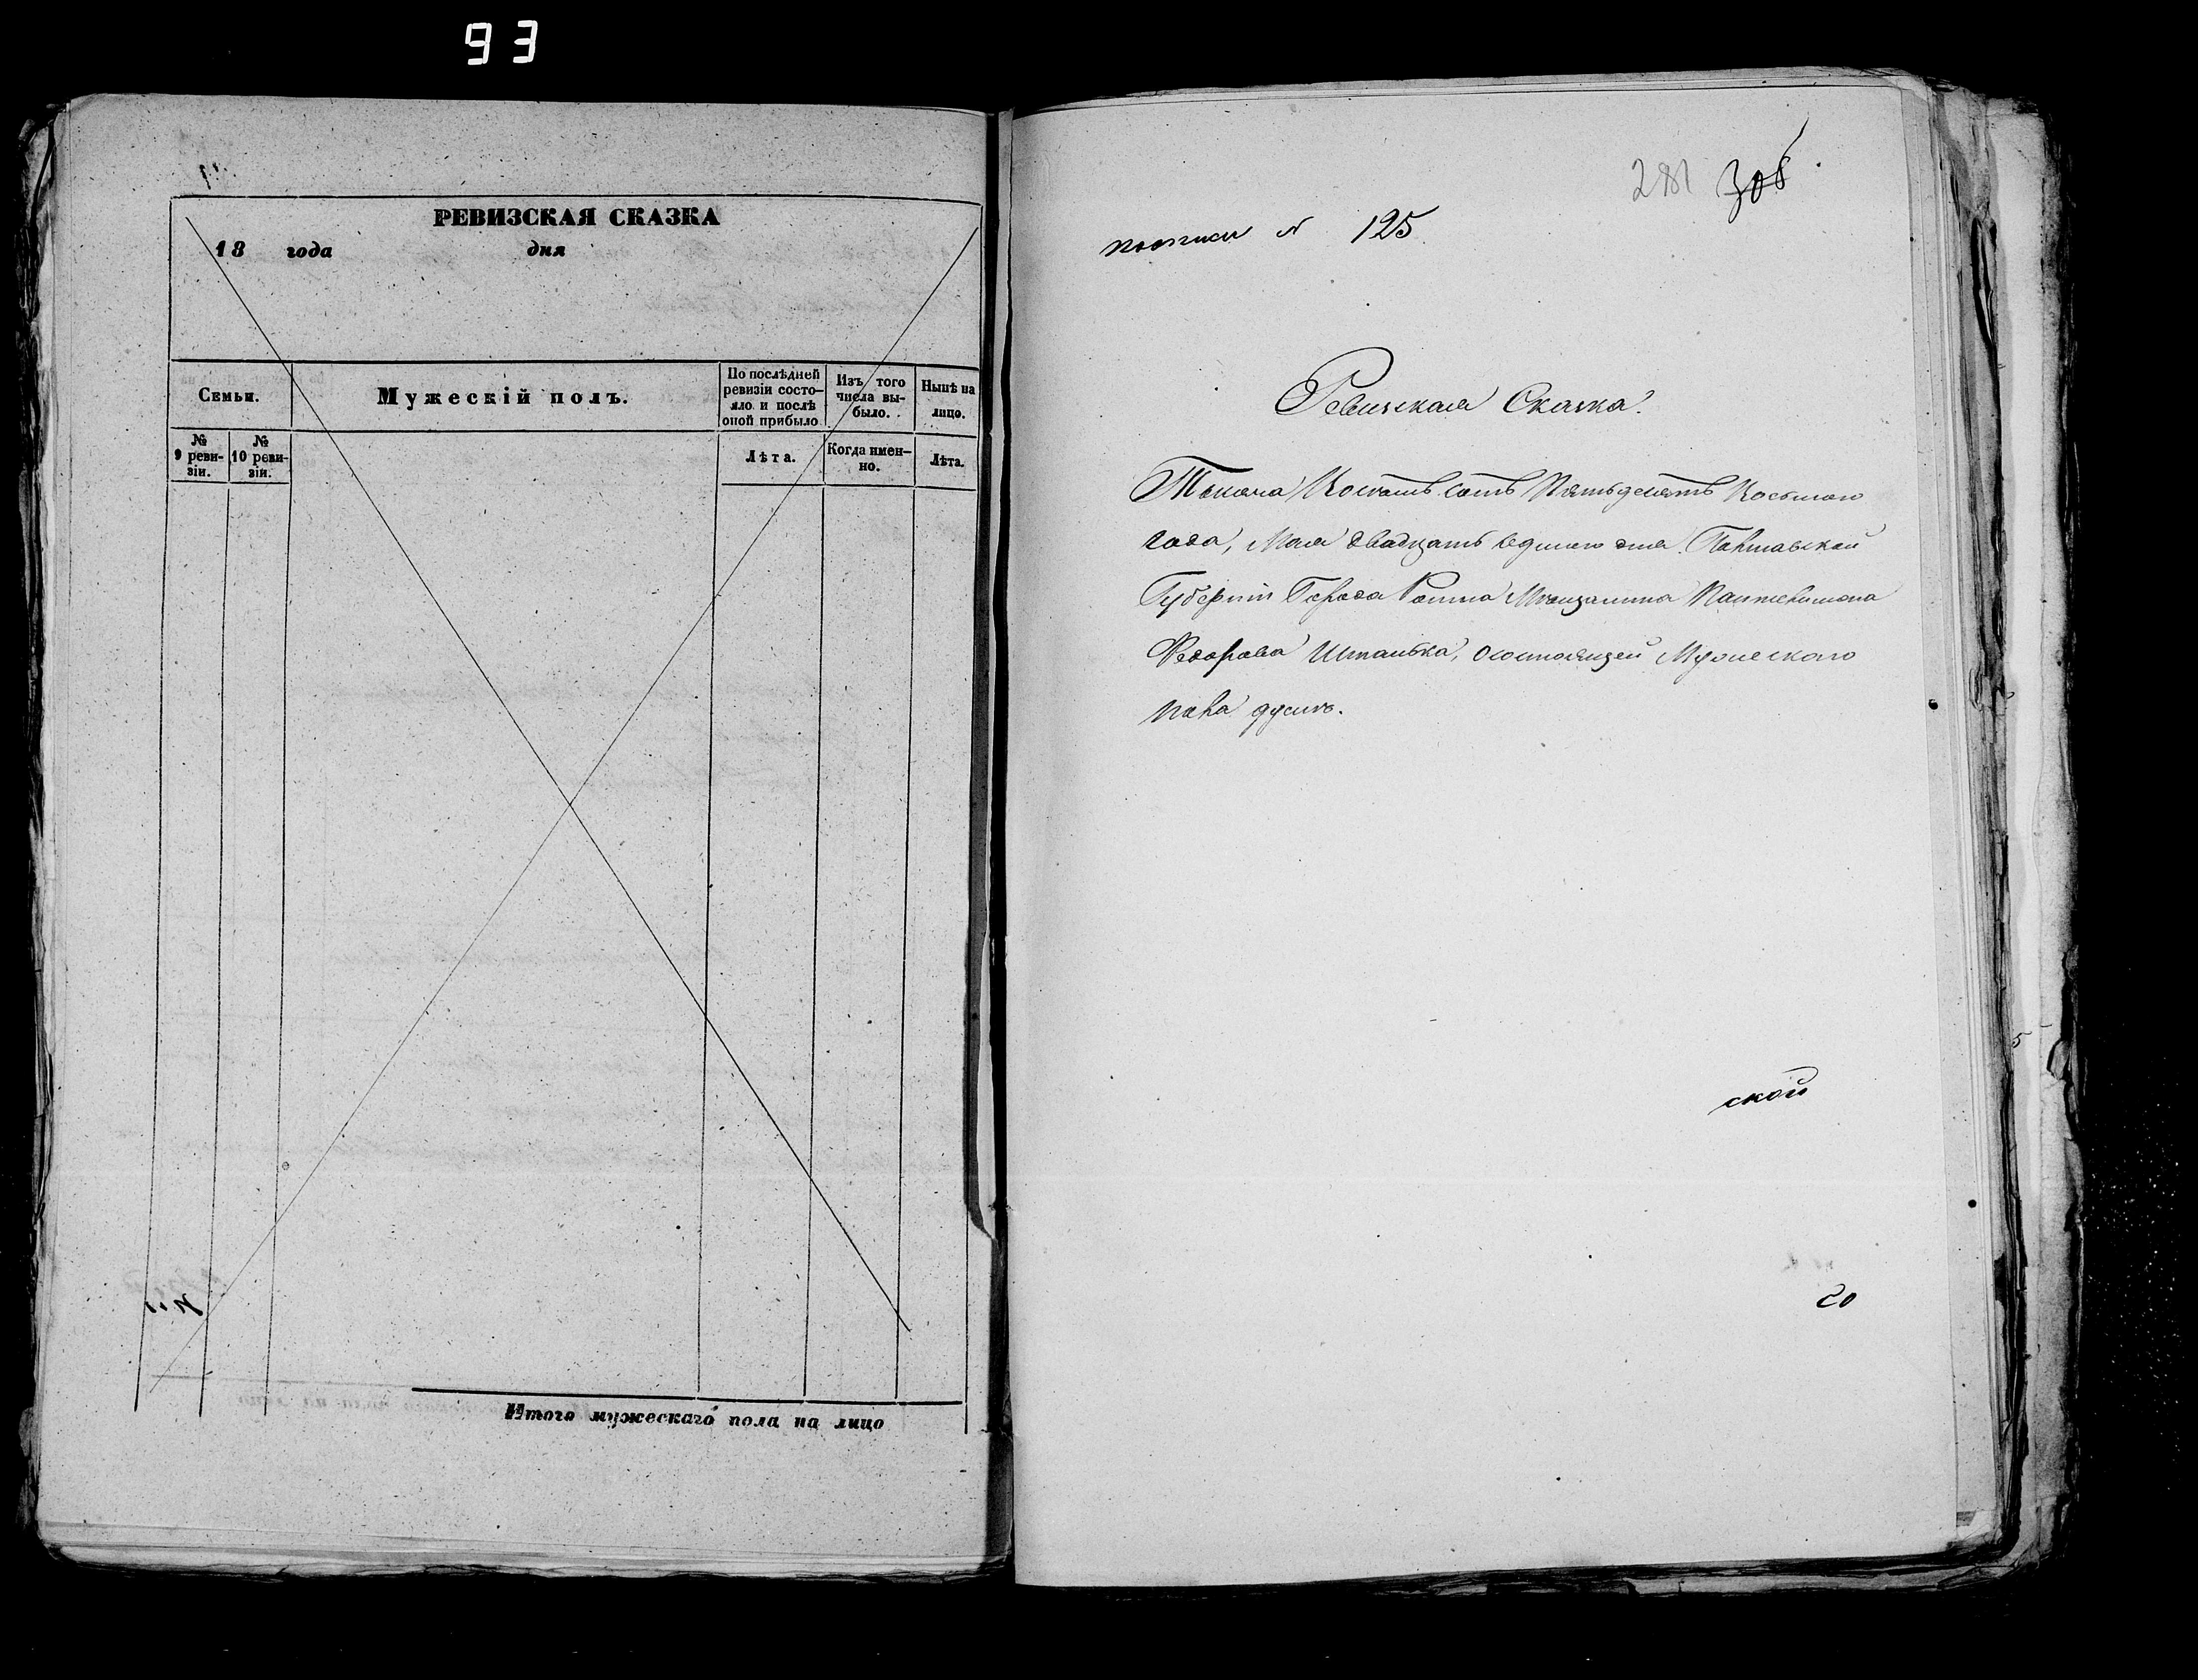 93
РЕВИЗСКАЯ СКАЗКА
18 года дня
Семьи.
Мужескій полъ.
По послѣдней
ревизіи состо-
яло и послѣ
оной прибыло
Изъ того
числа вы-
было.
Нынѣ на
лицо.
№
9 реви-
зіи.
№
10 реви-
зіи.
Лѣта.
Когда имен-
но.
Лѣта.
Итого мужескаго пола на лицо
281 306
№ 125
Ревизская Сказка.
Тысяча Восемь сотъ Пятьдесятъ Восьмаго
года, Мая двадцать седмаго дня Полтавской
Губерніи Города Ромна Мѣщанина Пантелимона
Федорова Штанька, о состоящей Мужескаго
пола душѣ.
ской
20